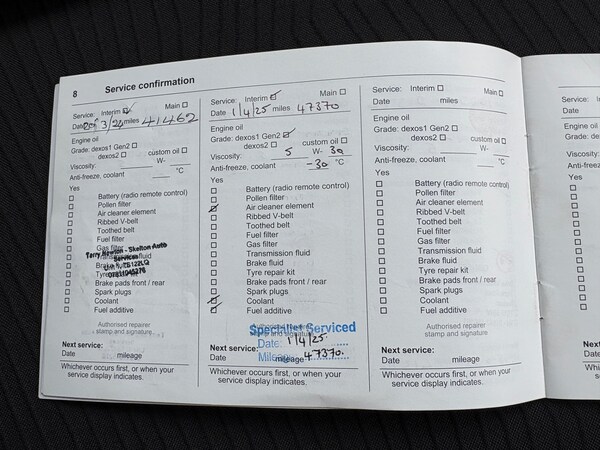 8 Service confirmation
Service: Interim Main
Date 3/24 miles 41462
Engine oil
Grade: dexos1 Gen2
dexos2 custom oil
Viscosity: W-
Anti-freeze, coolant °C
Yes
Battery (radio remote control)
Pollen filter
Air cleaner element
Ribbed V-belt
Toothed belt
Fuel filter
Gas filter
Terry Newton - Skelton Auto
Services
Brake
TS122LQ
Tyre
07811045276
Brake pads front / rear
Spark plugs
Coolant
Fuel additive
Authorised repairer
stamp and signature
Next service:
Date mileage
Whichever occurs first, or when your
service display indicates.
Service: Interim Main
Date 1/4/25 miles 47370
Engine oil
Grade: dexos1 Gen2
dexos2 custom oil
Viscosity: 5 W- 30
Anti-freeze, coolant -30 °C
Yes
Battery (radio remote control)
Pollen filter
Air cleaner element
Ribbed V-belt
Toothed belt
Fuel filter
Gas filter
Transmission fluid
Brake fluid
Tyre repair kit
Brake pads front / rear
Spark plugs
Coolant
Fuel additive
Specialist Serviced
stamp and signature
Next service:
Date: 1/4/25.
Date mileage 47370.
Whichever occurs first, or when your
service display indicates.
Service: Interim Main
Date miles
Engine oil
Grade: dexos1 Gen2
dexos2 custom oil
Viscosity: W-
Anti-freeze, coolant °C
Yes
Battery (radio remote control)
Pollen filter
Air cleaner element
Ribbed V-belt
Toothed belt
Fuel filter
Gas filter
Transmission fluid
Brake fluid
Tyre repair kit
Brake pads front / rear
Spark plugs
Coolant
Fuel additive
Authorised repairer
stamp and signature
Next service:
Date mileage
Whichever occurs first, or when your
service display indicates.
Service:
Date
Engine oil
Grade:
Viscosity:
Yes